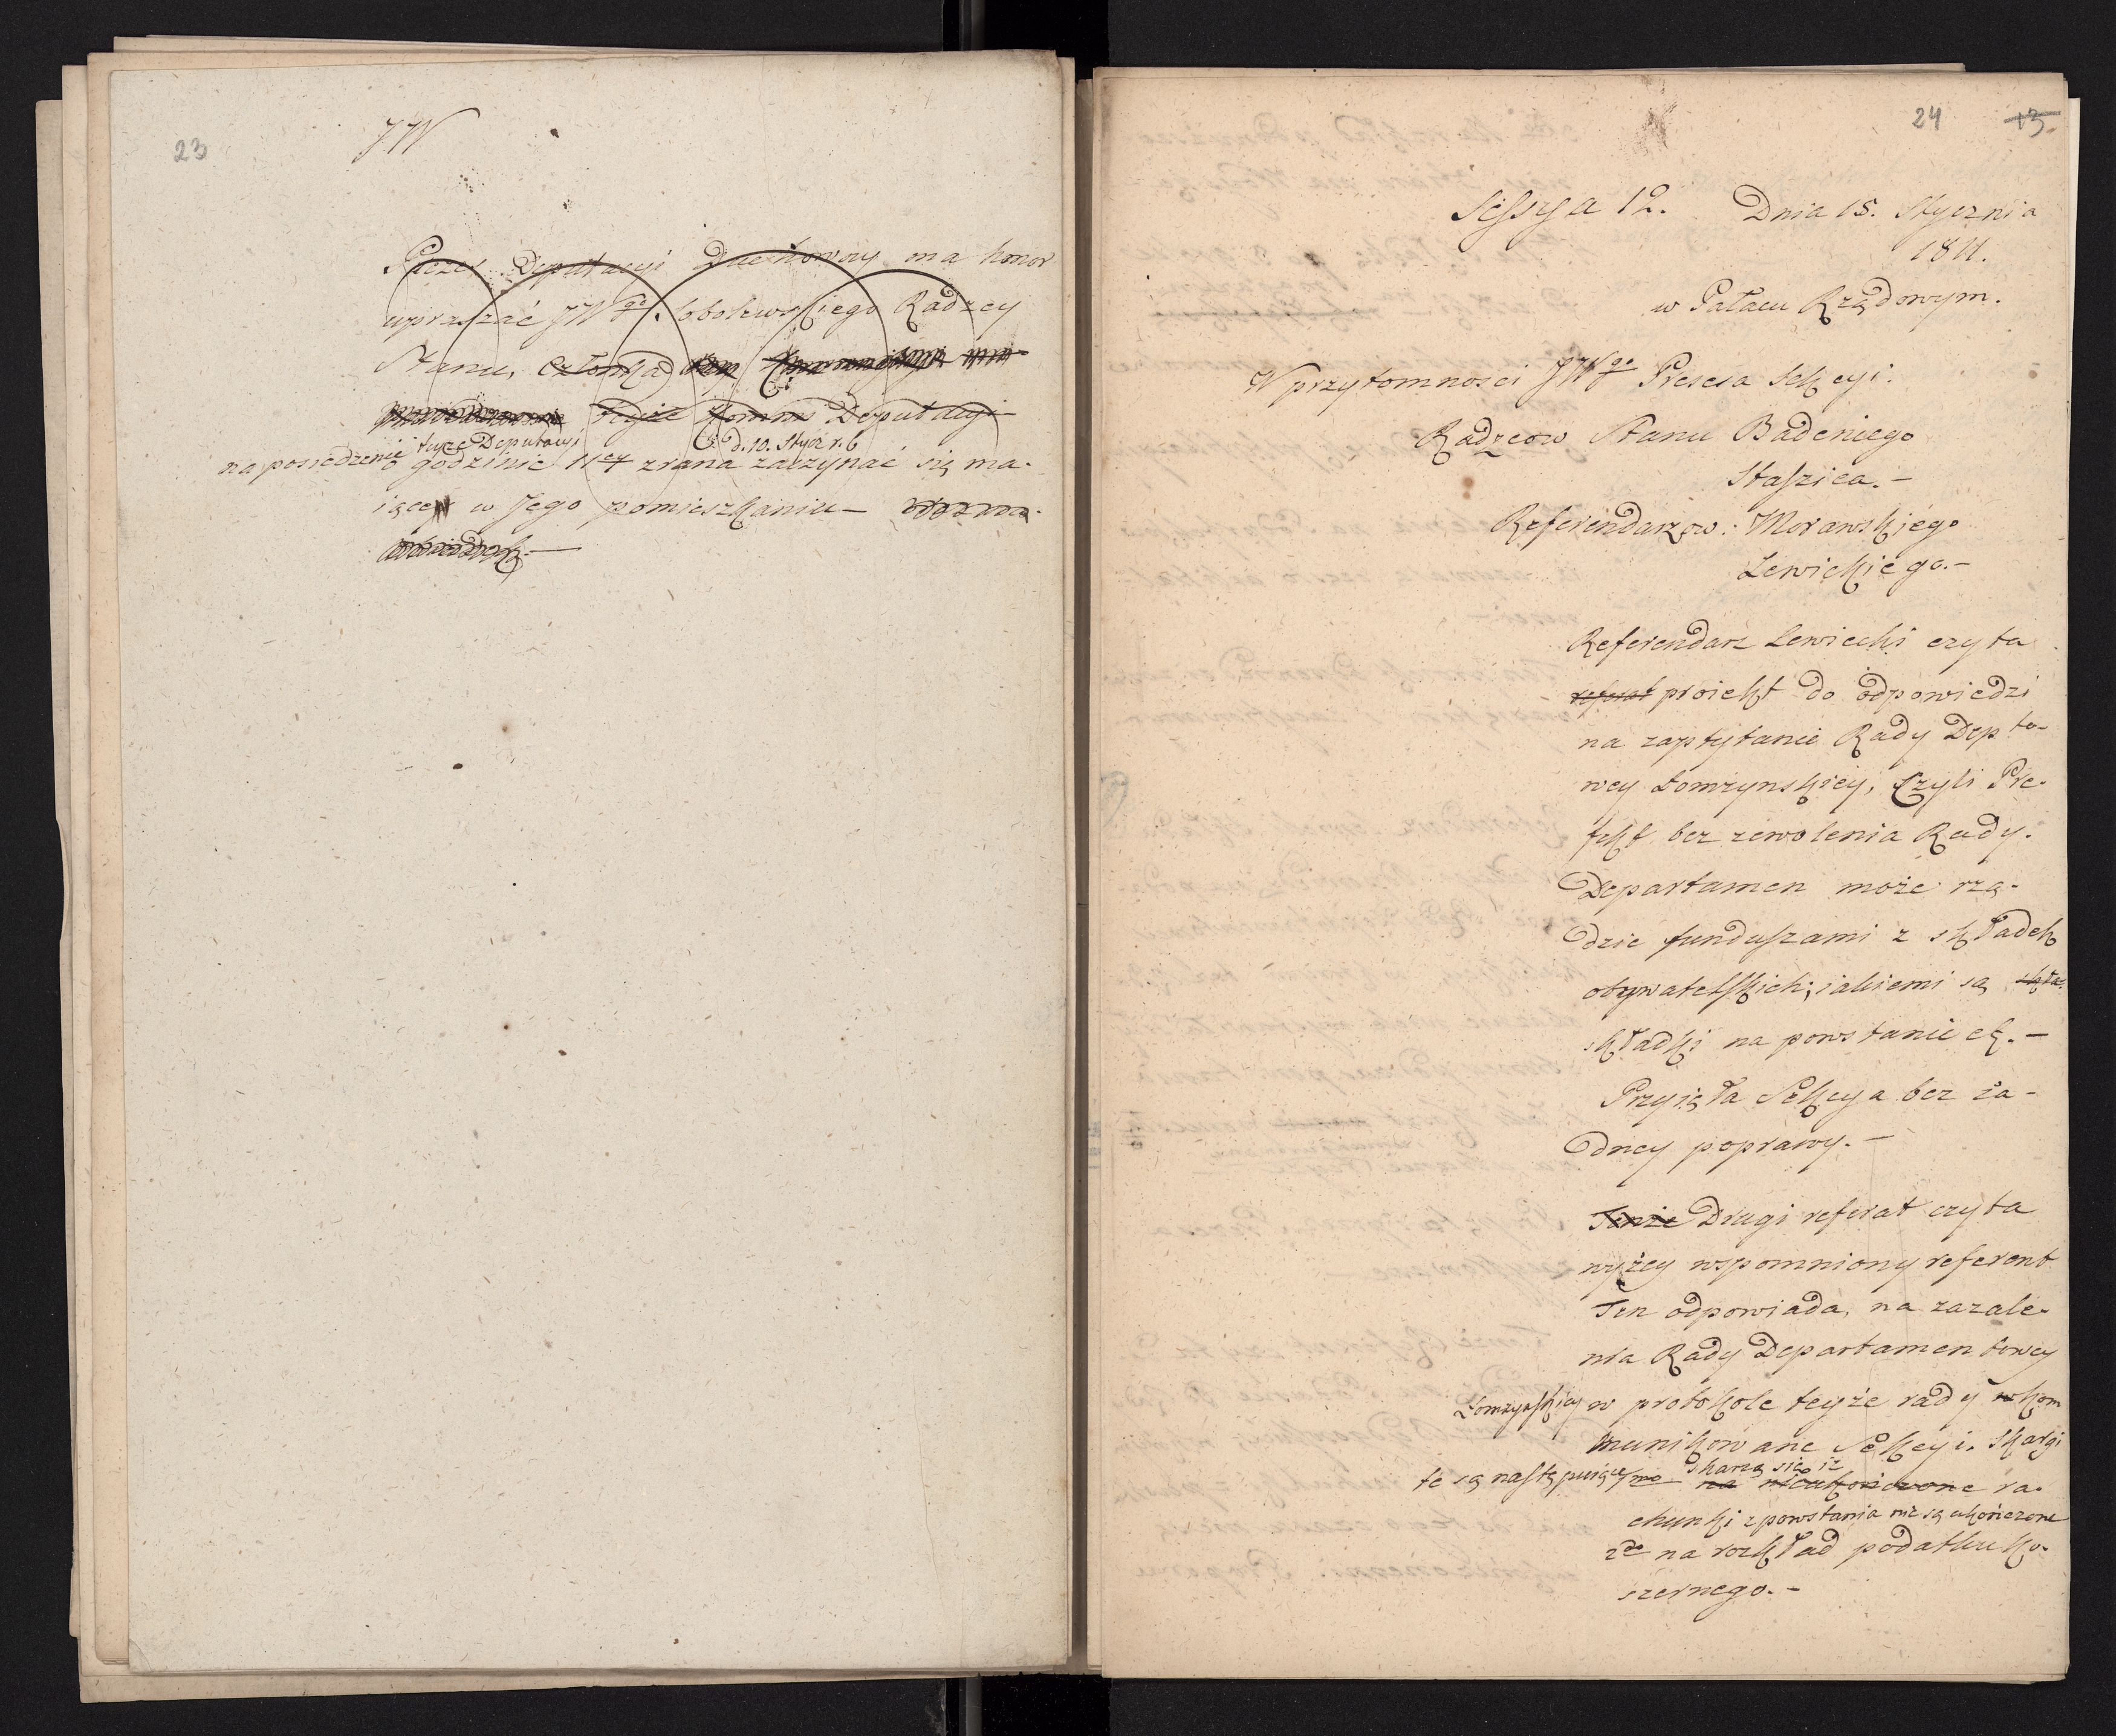 23
JW
Prezes Deputacyi Duchowney ma honor
upraszać JWgo Sobolewskiego Radzcy
Stanu, Członka
teyże Deputacyi
na posiedzenie teyże Deputacyi d. 10. Stycz r. b
o godzinie 11ey zrana zaczynać się ma-
iące w Jego pomieszkaniu —
24 13.
Sessya 12. Dnia 15. Stycznia
1811.
w Pałacu Rządowym.
W przytomności JWgo Prezesa Sekcyi.
Radzcow Stanu Badeniego
Staszica. —
Referendarzow: Morawskiego
Lewickiego. —
Referendarz Lewiecki czyta
referat proiekt do odpowiedzi
na zaptytanie Rady Depto-
wey Łomżynskiey, Czyli Pre-
fekt bez zewolenia Rady.
Departamen może rzą-
dzic funduszami z składek
obywatelskich; iakiemi są skła-
składki na powstanie etc. —
Przyięła Sekcya bez ża-
dney poprawy. —
Tenże Drugi referat czyta
wyżey wspomniony referent
Ten odpowiada, na zazale-
nia Rady Departamentowey
Łomzynskiey w protokole teyże rady w kom
munikowane Sekcyi. Skargi
te są następuiące 1mo skarżą się iż
na nieukończone ra-
chunki z powstania nie są ukończone
2do na rozkład podatku ko-
szernego. —